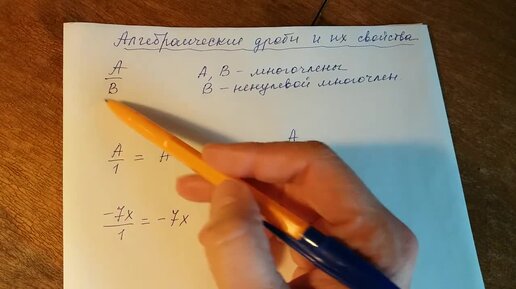 Алгебраические дроби и их свойства
A/B A, B - многочлены
B - ненулевой многочлен
A/1 = A
A
-7x/1 = -7x